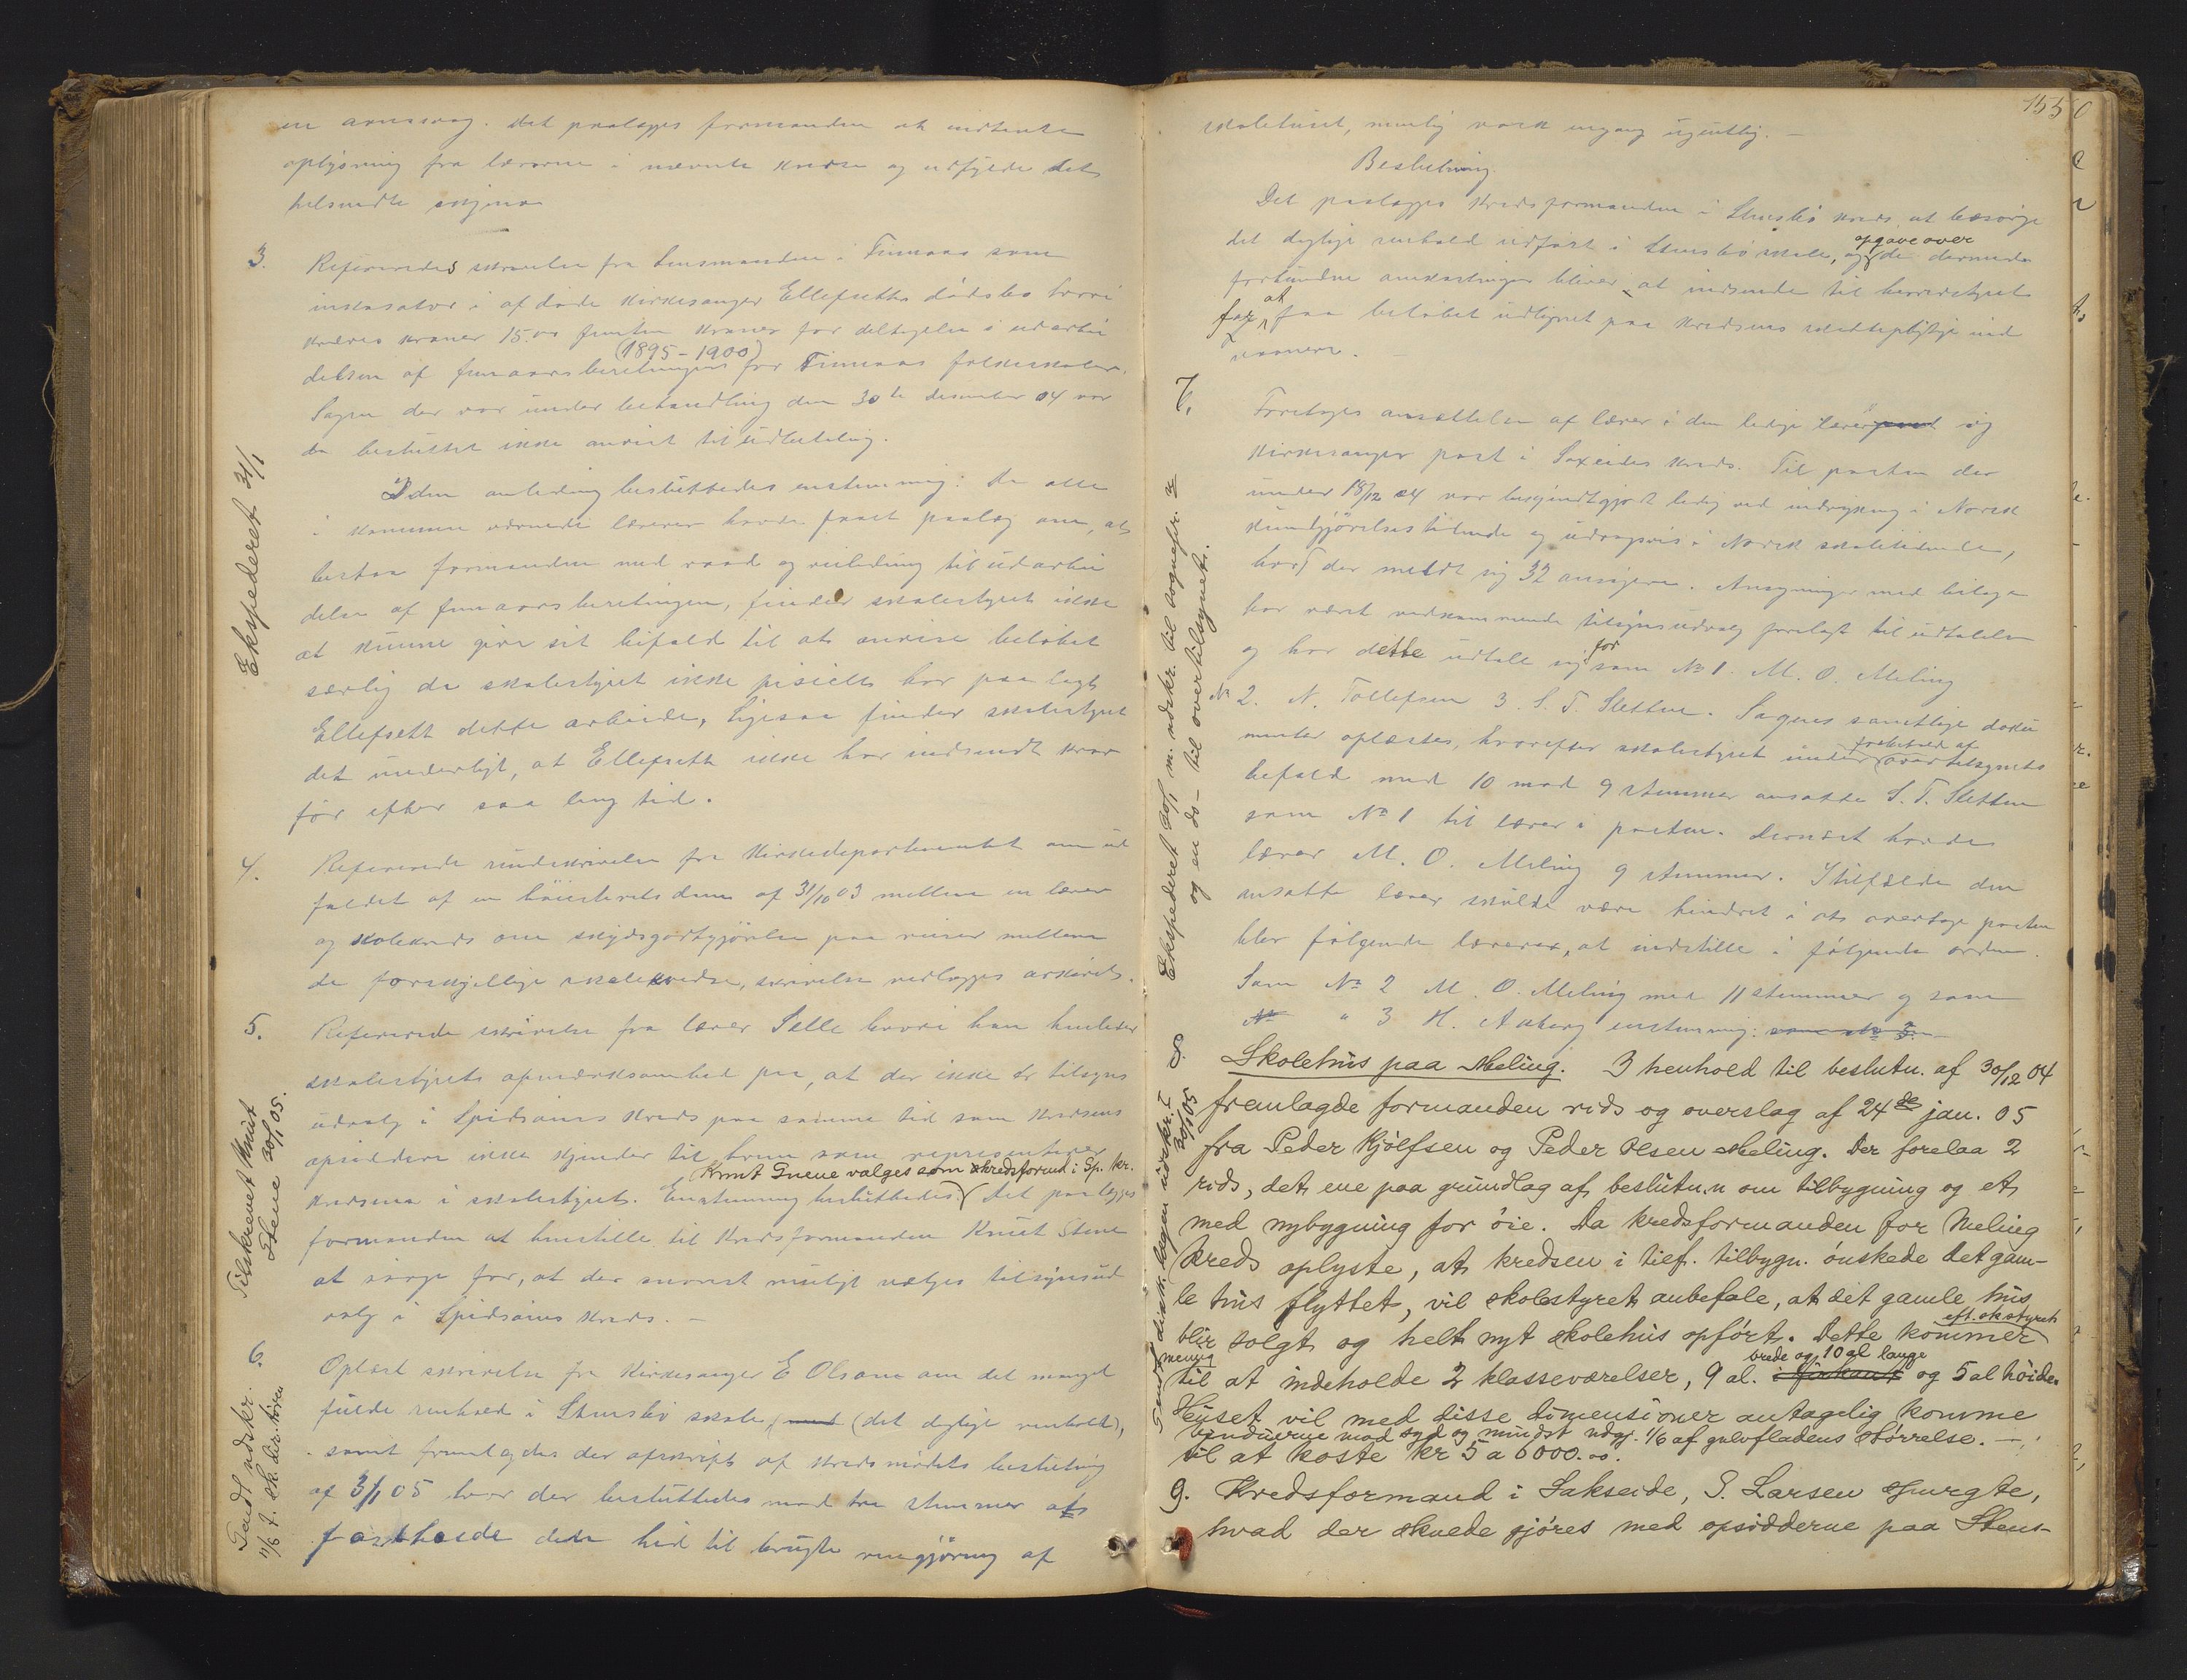 en annsaag. Det paalægges formanden at indhente
oplysning fra lærerne i nævnte kredse og udfylde det
tilsendte skjema
3. Refereredes skrivelse fra lensmanden i Finnaas som
inkasator i afdøde kirkesanger Ellefsetts dødsbo hvori
kræves kroner 15.00 femten kroner for deltagelse i udarbei
(1895-1900)
delsen af femaarsberetningen for Finnaas folkeskoler.
Sagen der var under behandling den 30te desember 04 var
da besluttet ikke anvist til udbetaling.
I den anledning besluttedes enstemmig: Da alle
i kommunen værende lærere havde faaet paalæg om, at
bistaa formanden med raad og veiledning til udarbei
delse af femaarsberetningen, finder skolestyret ikke
at kunne give sit bifald til at anvise beløbet
særlig da skolestyret ikke specielt har paalagt
Ellefsett dette arbeide, ligesaa finder skolestyret
det underligt, at Ellefsett ikke har indsendt krav
før efter saa lang tid.
Ekspederet 31/1
4. Refererede rundskrivelse fra Kirkedepartementet om ud
faldet af en høiesteretsdom af 31/10 03 mellem en lærer
og skolekreds om skydsgodtgjørelse paa reiser mellem
de forskjellige skolekredse, skrivelse vedlægges arkivet.
5. Refererede skrivelse fra lærer Selle hvori han henleder
skolestyrets opmærksomhed paa, at der ikke er tilsyns
udvalg i Spidsøens kreds paa samme tid som kredsens
opsiddere ikke kjender til hvem som representerer
Knut Guene valges som kredsformd i Sp. kr.
kredsen i skolestyret. Enstemmig besluttedes: Det paalægges
formanden at henstille til Kredsformanden Knut Stene
at sørge for, at der snarest muligt vælges tilsynsud
valg i Spidsøens kreds. -
Tilskrevet Knut
Stene 30/1 05.
6. Oplæst skrivelse fra Kirkesanger E Olsen om det mangel
fulde renhold i Stensbø skole, (det daglige renhold),
samt fremlagdes der afskrift af kredsmødets beslutning
af 3/1 05 hvor der besluttedes med tre stemmer at
fastholde den hid til brugte rengjøring af
Sendt udskr.
11/6 t. sk.dir.tøren
155
skolehuset, nemlig vask engang ugentlig. -
Beslutning.
Det paalægges kredsformanden i Stensbø kreds at besørge
det daglige renhold udført i Stensbø skole, og
opgave over
de dermed
forbundne omkostninger bliver at indsende til herredstyret
for at faa beløbet udlignet paa kredsens skattepligtige ind
vaanere. -
7. Foretoges ansættelse af lærer i den ledige lærerpost og
kirkesanger post i Sakseides kreds. Til posten der
under 18/12 04 var bekjendtgjort ledig ved indrykning i Norsk
Kundgjørelsestidende og udsagsvis i Norsk skoletidende,
har der meldt sig 32 ansøgere. Ansøgninger med bilage
har været vedkommende tilsynsudvalg forelagt til udtalelse
og har dette udtalt sig for som No 1. M. O. Meling
No 2. N. Tollefsen 3. S. T. Sletten. Sagens samtlige doku
menter oplæstes, hvorefter skolestyret under
forbehold af
overtilsynets
bifald med 10 mod 9 stemmer ansatte S. T. Sletten
som No 1 til lærer i posten. Dernæst havde
lærer M. O. Meling 9 stemmer. I tilfælde den
ansatte lærer skulde være hindret i at overtage posten
blev følgende lærere, at indstille i følgende orden.
Som No 2 M. O. Meling med 11 stemmer og som
No " 3 H. Aakerg enstemmig: som No 3.
Ekspederet 30/1 m. udskr. til sognepr. Z
og en do - til overtilsynet.
8. Skolehus paa Meling. I henhold til beslutn. af 30/12 04
fremlagde formanden rids og overslag af 24de jan. 05
fra Peder Kjølfsen og Peder Olsen Meling. Der forelaa 2
rids, det ene paa grundlag af beslutn.n om tilbygning og et
med nybygning for øie. Da kredsformanden for Meling
kreds oplyste, at kredsen i tilf. tilbygn. ønskede det gam-
le hus flyttet, vil skolestyret anbefale, at det gamle hus
blir solgt og helt nyt skolehus opført. Dette kommer
eft. skstyrets
mening
til at indeholde 2 klasseværelser, 9 al. i firkant
brede og 10 al lange
og 5 al høide.
Huset vil med disse dimensioner antagelig komme
Vinduerne mod syd og mindst udgj. 1/6 af gulvfladens størrelse. -
til at koste kr 5 a 6000.00.
Sendt distr.lægen udskr. I
30/1 05
9. Kredsformand i Sakseide, S. Larsen spurgte,
hvad der skuede gjøres med opsidderne paa Stens-